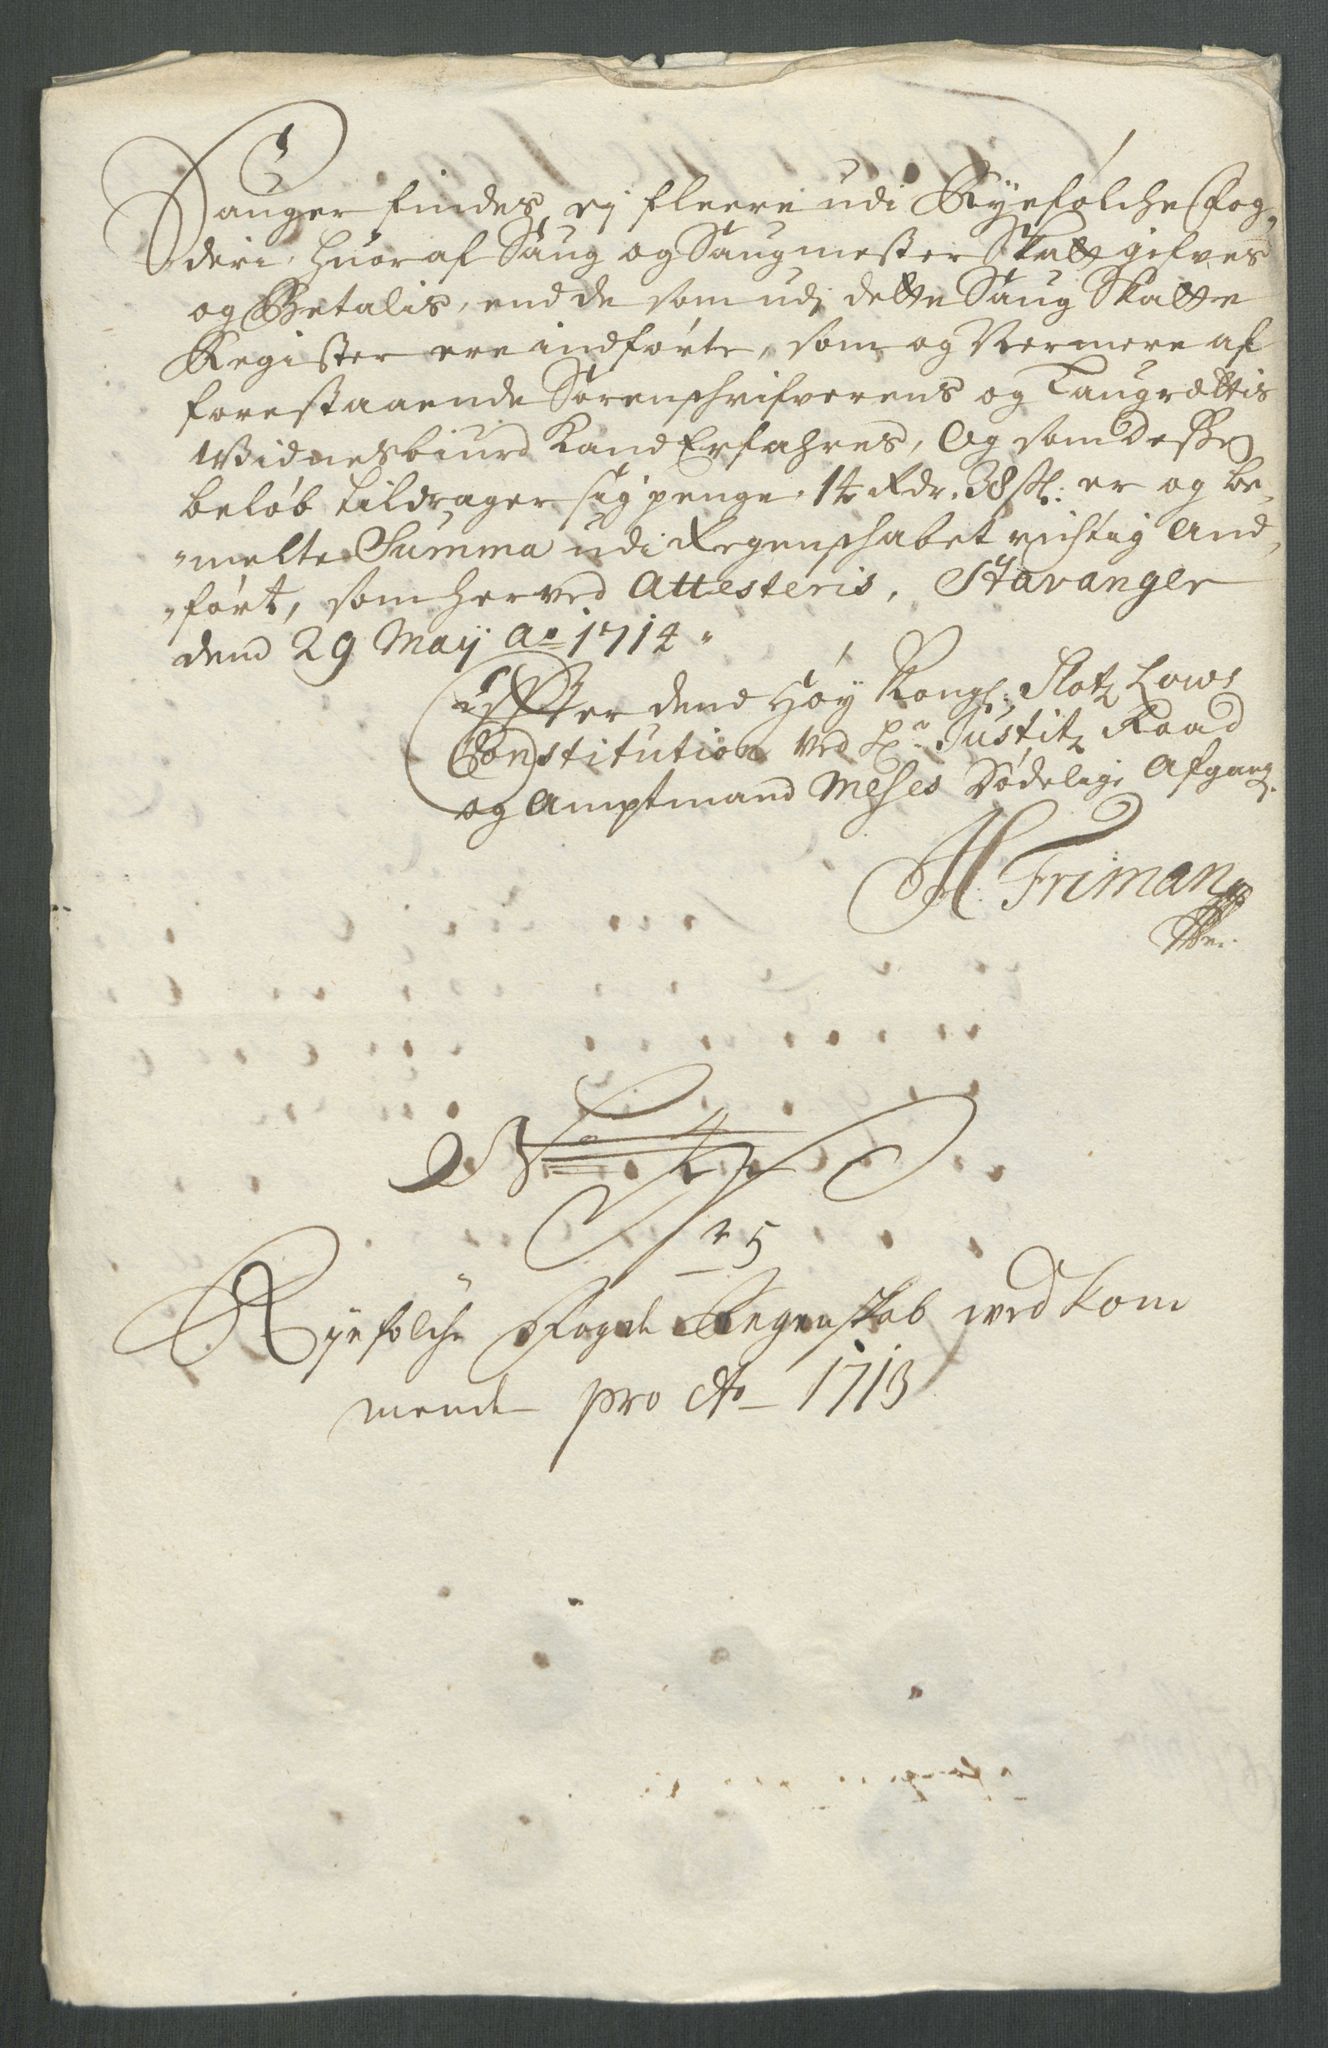 Sauger findes ej fleere udi Ryefølche Fog¬
deri, huoraf Saug og Saugmester Skatt gifves
og Betalis, end de som udj dette Saug Skatte
Register ere indførte, som og Nermere af
forestaaende Sorenschrifverens og Laugrættis
Widnesbiurd Kand Erfahres, Og som Desse
beløb tildrager sig penge 14 Rdr. 38 ſl: er og be¬
melte Summa udi Regenschabet rigtig And¬
ført, som herved Attesteris, Stavanger
dend 29 Maij Ao 1714
Effter dend Høy Kongl: Slotz Lows
Constitution ved Hr Justitz Raad
og Amptmand Meses Dødelige Afgang
H Friman
No 4
25
Ryefølche Fogde Regenskab ved kom
mende pro Ao 1713